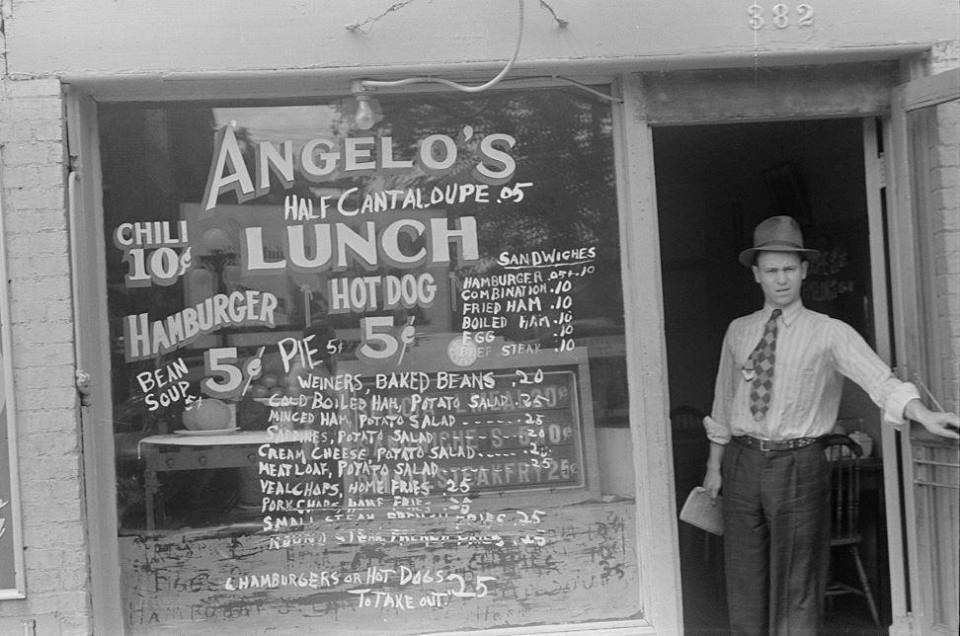 382
ANGELO'S
HALF CANTALOUPE .05
LUNCH
CHILI
10¢
HAMBURGER
5¢
HOT DOG
5¢
SANDWICHES
HAMBURGER .05+.10
COMBINATION .10
FRIED HAM .10
BOILED HAM .10
EGG .10
BEEF STEAK .10
BEAN
SOUP 5¢
PIE 5¢
WEINERS, BAKED BEANS .20
COLD BOILED HAM, POTATO SALAD .25
MINCED HAM, POTATO SALAD ------ .25
SARDINES, POTATO SALAD .20
CREAM CHEESE, POTATO SALAD
MEAT LOAF, POTATO SALAD .25
VEAL CHOPS, HOME FRIES .25
PORK CHOPS, HOME FRIES
SMALL STEAK FRENCH FRIES .25
ROUND STEAK FRENCH FRIES .25
5 HAMBURGERS OR HOT DOGS 25
TO TAKE OUT